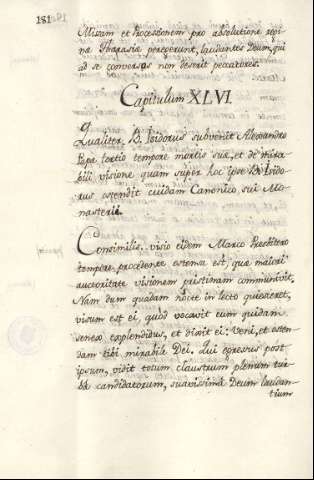 181
Missam et Processionem pro absolutione regi-
næ Tharasiæ peregerunt, laudantes Deum, qui
ad se conversos non deserit peccatores.
Capitulum XLVI.
Qualiter B. Isidorus subvenit Alexandro
Papæ tertio tempore mortis suæ, et de mira-
bili visione quam super hoc ipse B. Isido-
rus ostendit cuidam Canonico sui Mo-
nasterii.
Consimilis visio eidem Marco Presbitero
tempore procedente ostensa est, quæ maiori
auctoritate visionem pristinam communivit.
Nam dum quadam nocte in lecto quiesceret,
visum est ei, quod vocavit eum quidam
senex splendidus, et dixit ei: Veni, et osten-
dam tibi mirabile Dei. Qui egressus post
ipsum, vidit totum claustrum plenum tur-
ba candidatorum, suavissimè Deum laudan-
tium